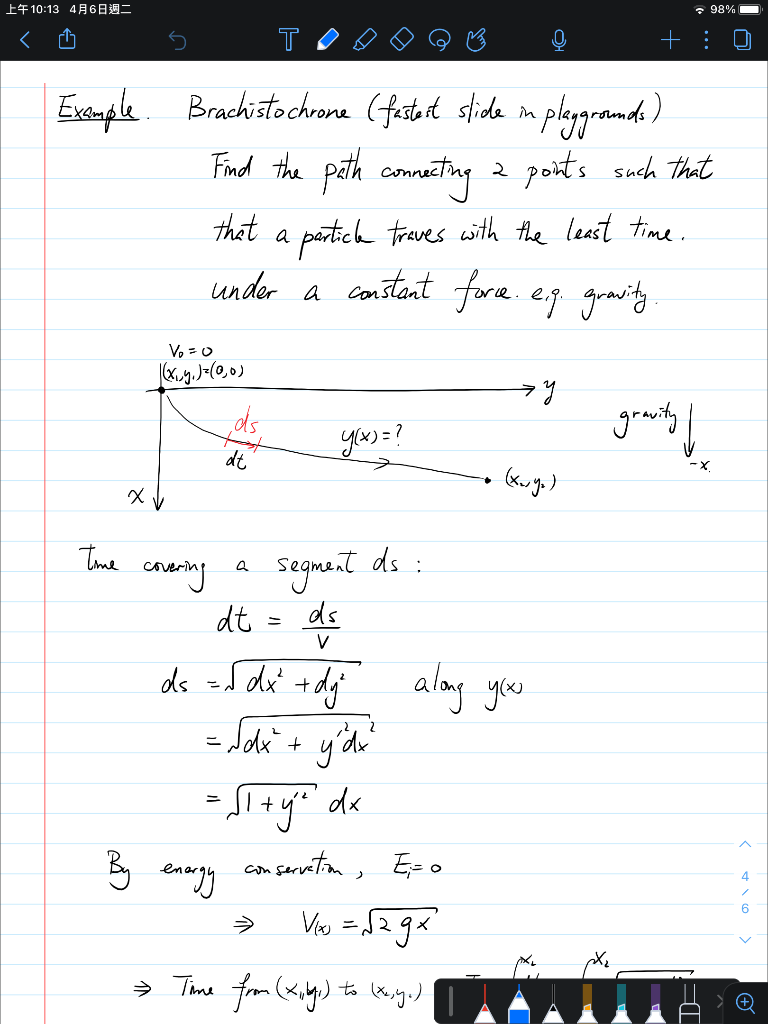 上午10:13 4月6日週二
98%
T
Example. Brachistochrone (fastest slide in playgrounds)
Find the path connecting 2 points such that
that a particle traves with the least time.
under a constant force. e.g. gravity.
V₀ = 0
(x₁,y₁)=(0,0)
y
ds
y(x)=?
gravity
dt
-x.
(x₂,y₂)
x
Time covering a segment ds :
dt = ds/v
ds = √(dx² + dy²) along y(x)
= √(dx² + y'²dx²)
= √(1 + y'²) dx
By energy conservation, Eᵢ = 0
4
/
6
⇒ V(x) = √(2gx)
⇒ Time from (x₁,y₁) to (x₂,y₂)